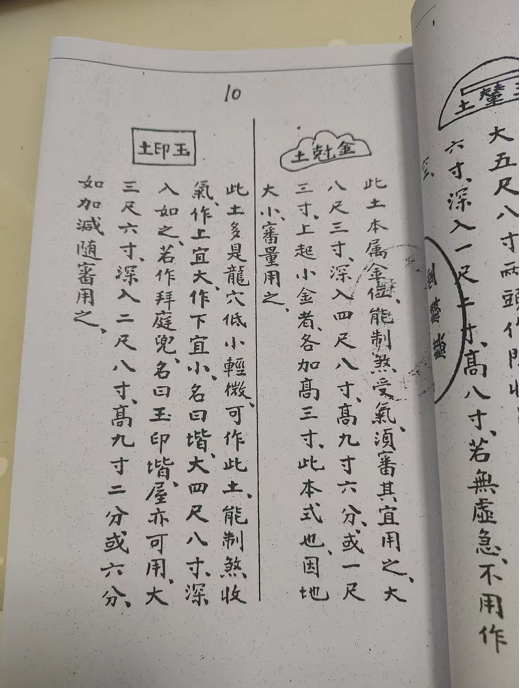 10
土尅金
此土本属金位、能制煞受氣、須審其宜用之、大
八尺三寸、深入四尺八寸、髙九寸六分、或一尺
三寸、上起小金者、各加髙三寸、此本式也、因地
大小、審量用之、
土印玉
此土多是龍穴低小輕微、可作此土、能制煞收
氣、作上宜大、作下宜小、名曰堦、大四尺八寸、深
入如之、若作拜庭兜、名曰玉印堦、屋亦可用、大
三尺六寸、深入二尺八寸、髙九寸二分、或六分、
如加減随審用之、
土
大五尺八寸兩頭作
六寸、深入一尺二寸、髙八寸、若無虛急、不用作